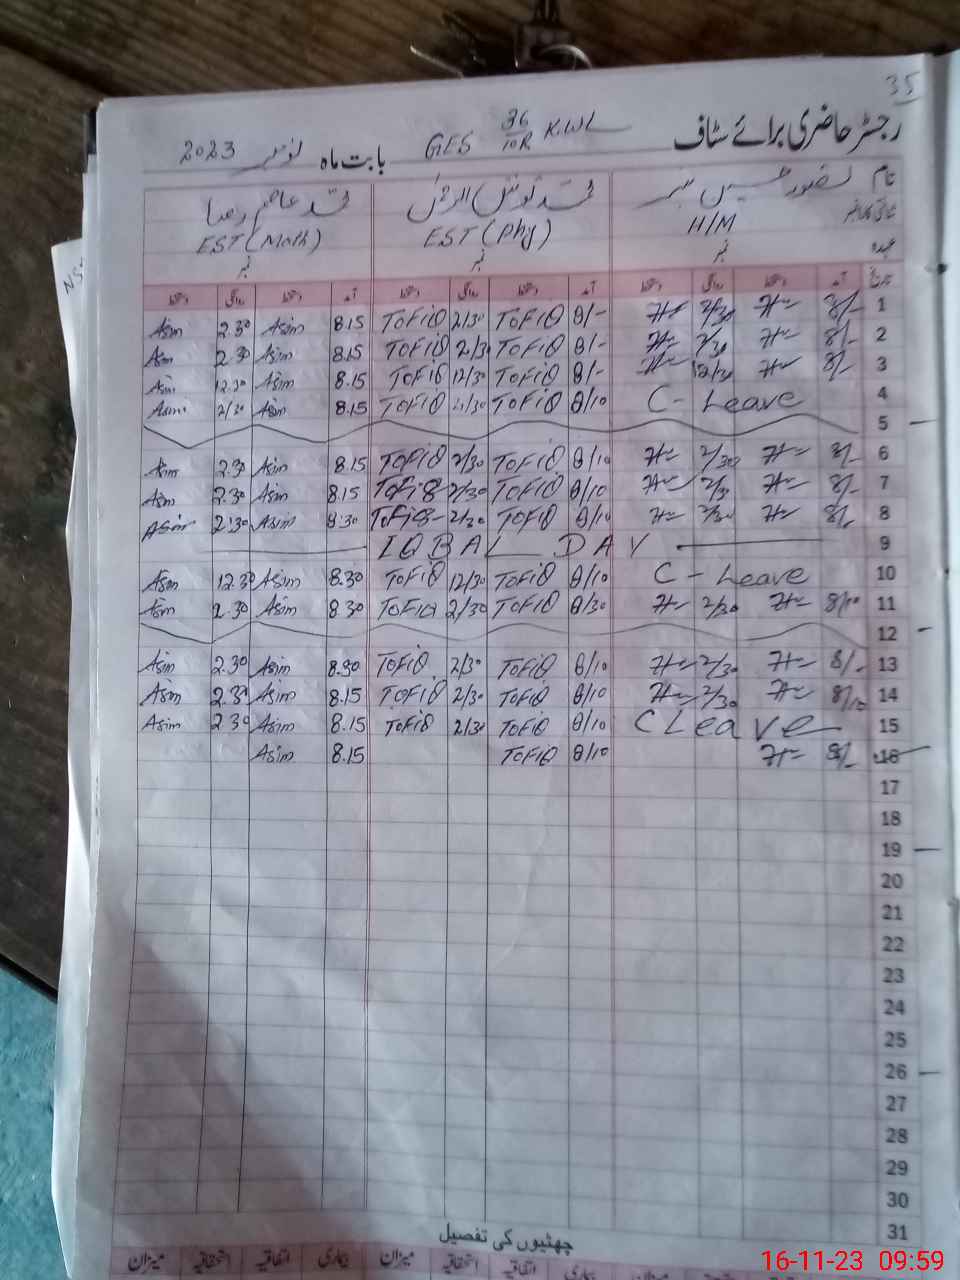 35
رجسٹر حاضری برائے سٹاف GES 36/10R KWL بابت ماہ نومبر 2023
نام تصور حسین محمد توفیق الرحمٰن محمد عاصم رضا
عہدہ H/M EST (Phy) EST (Math)
نمبر نمبر نمبر
تاریخ آمد دستخط روانگی دستخط آمد دستخط روانگی دستخط آمد دستخط روانگی دستخط
Asim 2.30 Asim 8.15 TOFiQ 2/30 TOFiQ 8/- 2/30 8/- 1
Asim 2.30 Asim 8.15 TOFiQ 2/30 TOFiQ 8/- 2/30 8/- 2
Asim 12.30 Asim 8.15 TOFiQ 12/30 TOFiQ 8/- 12/30 8/- 3
Asim 2/30 Asim 8.15 TOFiQ 2/30 TOFiQ 8/10 C- Leave 4
5
Asim 2.30 Asim 8.15 TOFiQ 2/30 TOFiQ 8/10 2/30 8/- 6
Asim 2.30 Asim 8.15 TOFiQ 2/30 TOFiQ 8/10 2/30 8/- 7
Asim 2.30 Asim 8.30 TOFiQ 2/30 TOFiQ 8/10 2/30 8/- 8
IQBAL DAY 9
Asim 12.30 Asim 8.30 TOFiQ 12/30 TOFiQ 8/10 C - Leave 10
Asim 2.30 Asim 8.30 TOFiQ 2/30 TOFiQ 8/30 2/30 8/10 11
12
Asim 2.30 Asim 8.30 TOFiQ 2/30 TOFiQ 8/10 2/30 8/- 13
Asim 2.30 Asim 8.15 TOFiQ 2/30 TOFiQ 8/10 2/30 8/10 14
Asim 2.30 Asim 8.15 TOFiQ 2/30 TOFiQ 8/10 C Leave 15
Asim 8.15 TOFiQ 8/10 8/- 16
17
18
19
20
21
22
23
24
25
26
27
28
29
30
31
چھٹیوں کی تفصیل
میزان بیماری اتفاقیہ استحقاقیہ میزان بیماری اتفاقیہ استحقاقیہ میزان
16-11-23 09:59